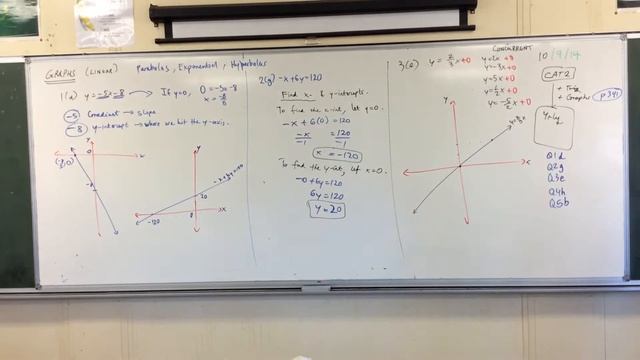 GRAPHS (LINEAR) Parabolas, Exponentials, Hyperbolas
1(d) y = -5x - 8 → If y=0, 0 = -5x - 8
x = -8/5
-5 Gradient → slope
-8 y-intercept → where we hit the y-axis.
(-8/5, 0)
y
0
x
-8
y
-x+6y=120
20
-120
0
x
2(g) -x+6y=120
Find x & y-intercepts.
To find the x-int, let y=0.
-x + 6(0) = 120
-x/-1 = 120/-1
x = -120
To find the y-int, let x=0.
-0 + 6y = 120
6y = 120
y = 20
3(e) y = 2/3 x + 0
CONCURRENT
y = 2x + 0
y = -3x + 0
y = 5x + 0
y = 1/2 x + 0
y
x
10/9/14
CAT2
p341
Q1d
Q2g
Q3e
Q4h
Q5b